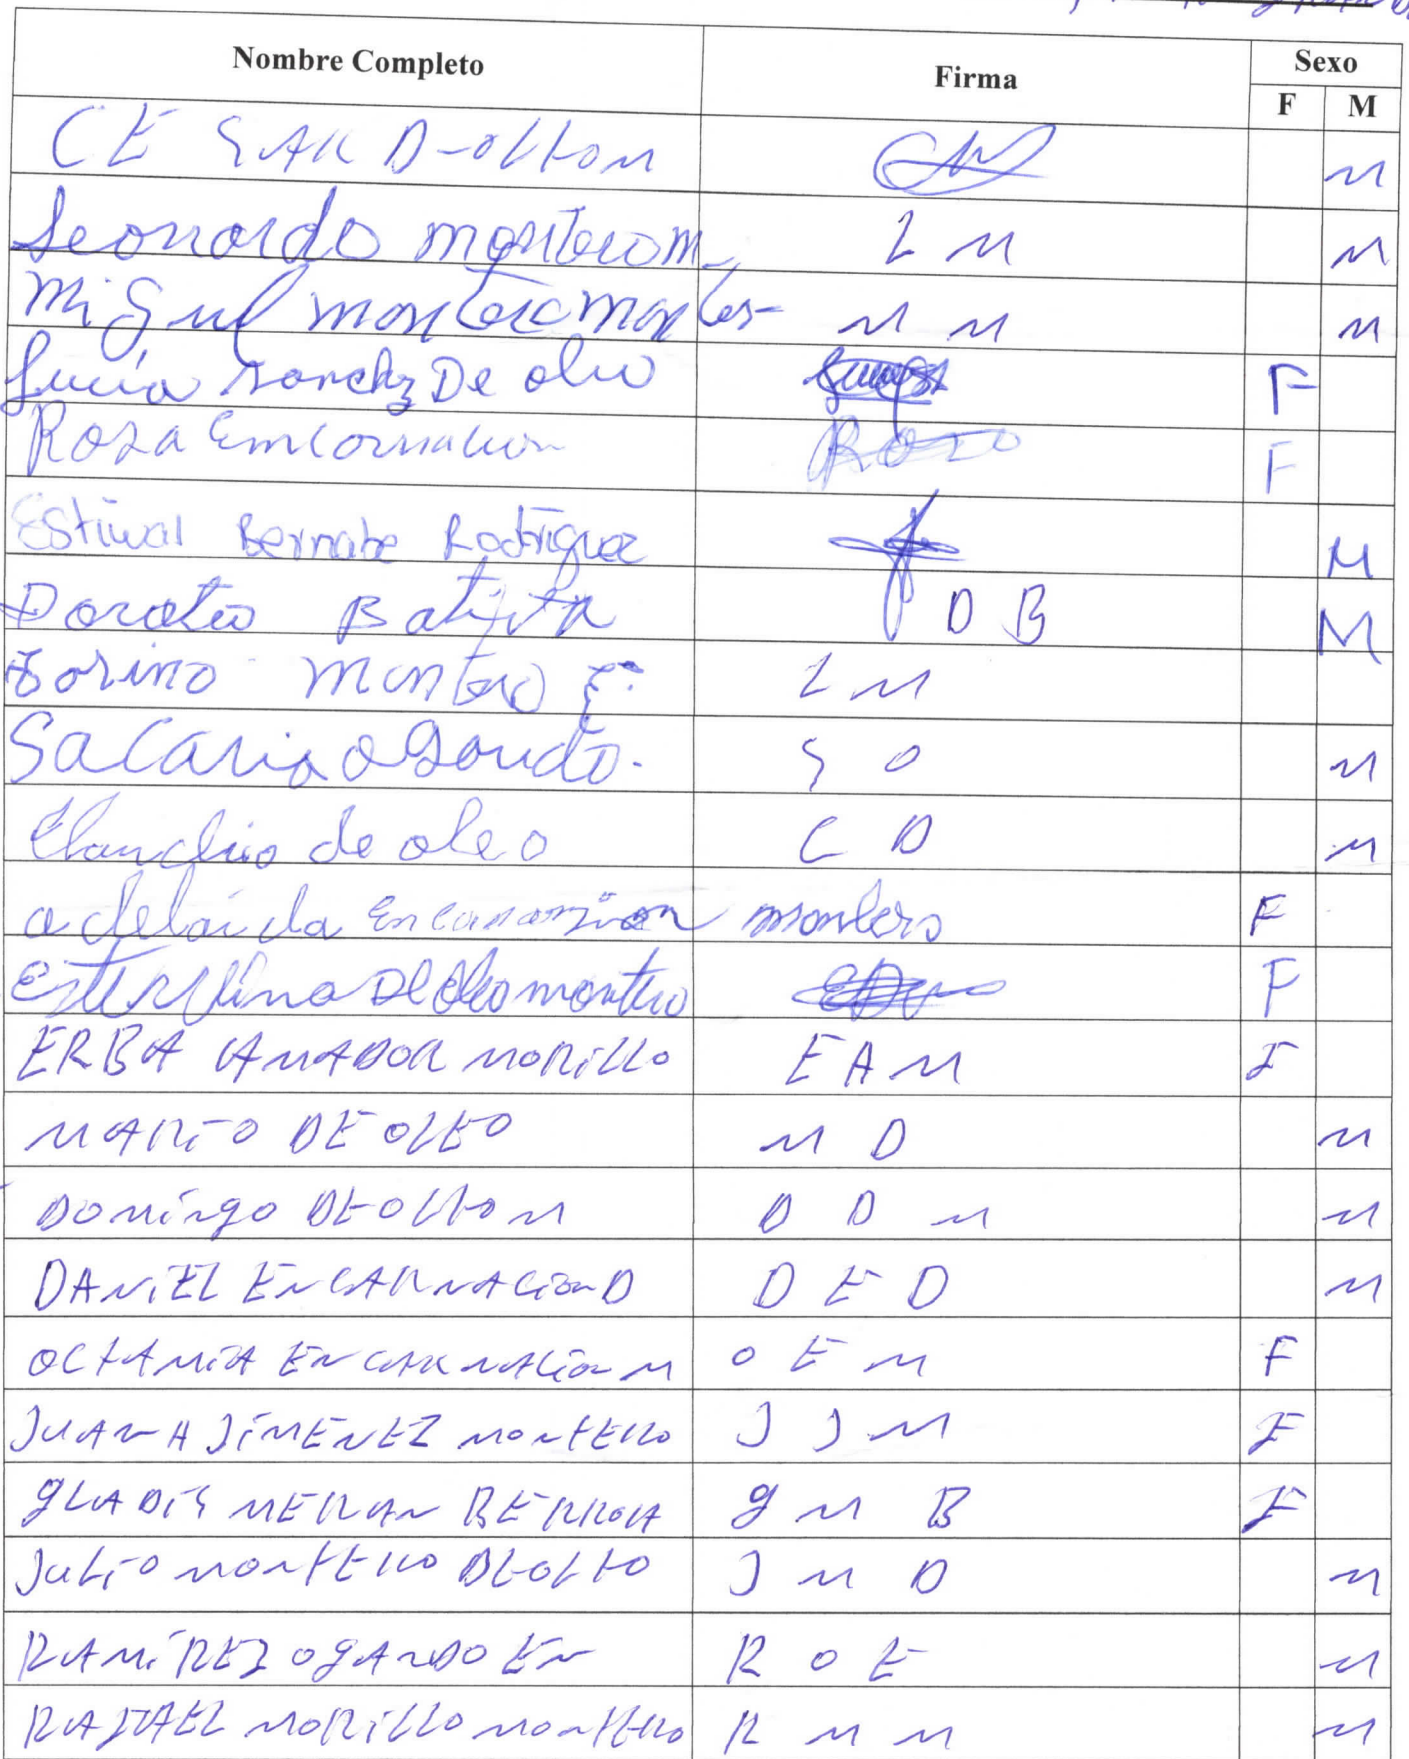 Nombre Completo Firma Sexo
F M
CESAR D-oleo M M
Leonardo montero M. L M M
Miguel montero montes- M M M
Lucía Sanchz De oleo F
Rosa Emcornacion Rosa F
Estiwal Bernabe Rodriguez M
Doroteo Batista D B M
Lorino montero E. L M
Sacaria ogando. S O M
Claudio de oleo C D M
adelaida Encarnazion montero F
Esterlina De oleo montero F
ERBA AMADOR MORILLO E A M F
MARIO DE OLEO M D M
DOMINGO DEOLEO M D D M M
DANIEL ENCARNACION D D E D M
OCTAMIA ENCARNACION M O E M F
JUANA JIMENEZ MONTERO J J M F
GLADIS MERAN BERROA G M B F
JULIO MONTERO DEOLEO J M D M
RAMIREZ OGANDO EN R O E M
RAFAEL MORILLO MONTERO R M M M